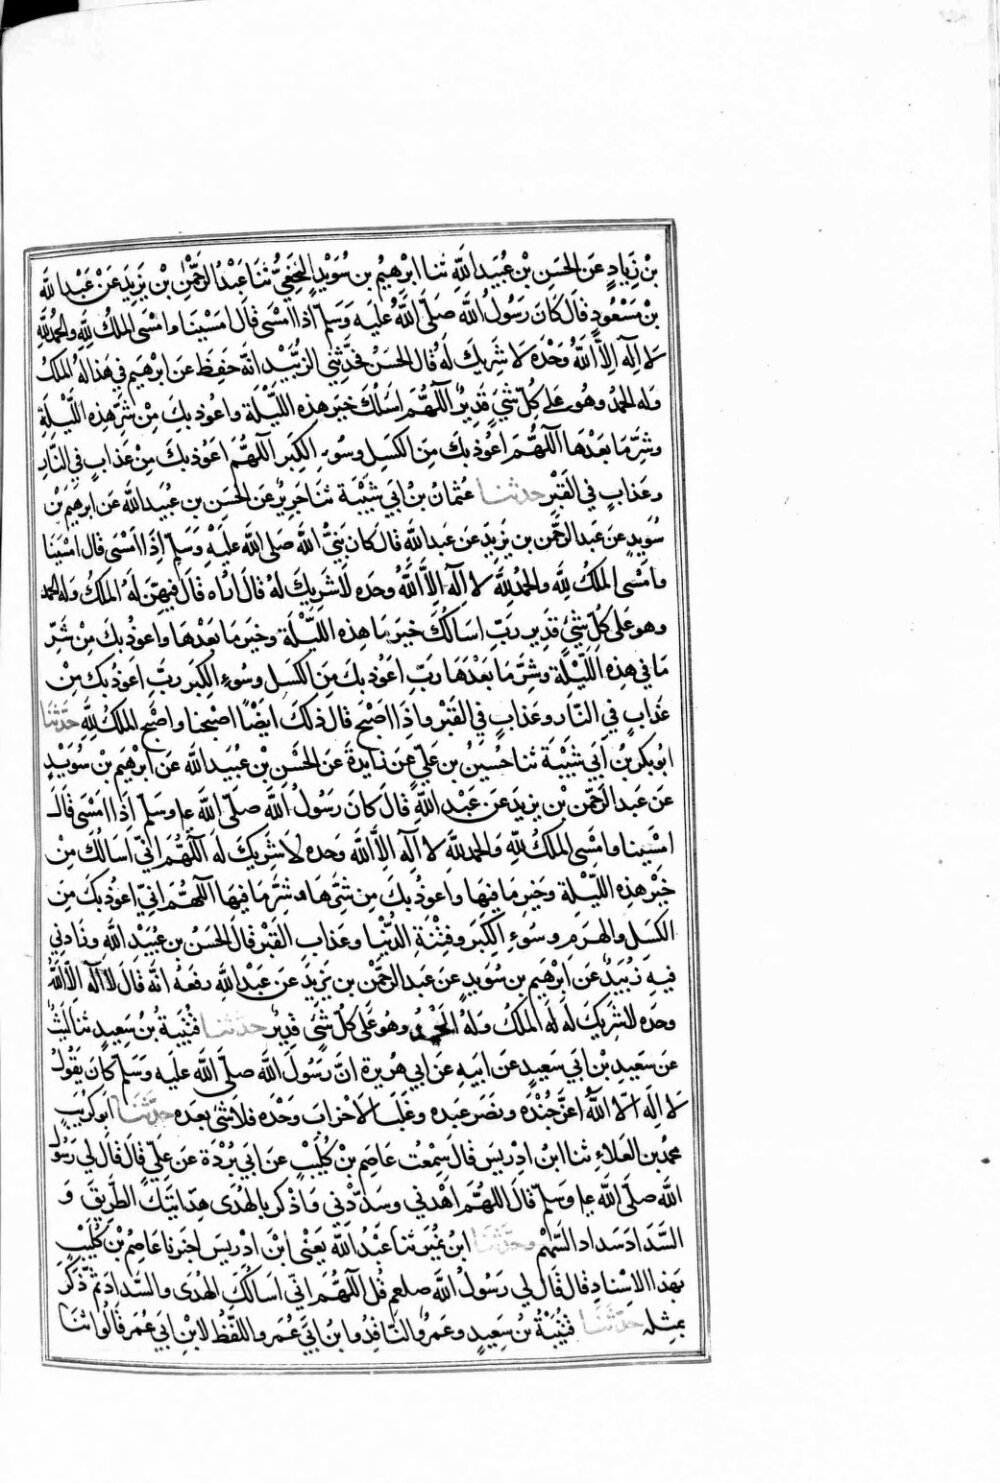 بْن زِيادٍ عَن الحَسَنِ بْن عُبَيدِ اللَّهِ ثنا ابْرهِيمُ بن سُوَيْدٍ النَّخَعِيُّ ثنَا عَبْدُ الرَّحْمٰنِ بْن يَزِيدَ عَنْ عَبْدِ اللَّه
بْن مَسْعُودٍ قال كانَ رَسُولُ اللَّه صَلَّى اللَّهُ عَلَيهِ وَسَلَّم اذا امْسَى قال امْسَيْنا وامْسَى الملكُ لِلَّهِ والحمدُ لِلَّهِ
لا اِلَه اِلاَّ اللَّهُ وَحْدَه لا شَرِيكَ لَهُ قال الحَسَنُ فحَدَّثَنِي الزُّبَيْد انَّه حَفِظَ عَن ابْرهِيم في هَذا لهُ الملكُ
وَله الحمدُ وهُوَ عَلى كُلِّ شَيءٍ قدِيرٌ اللَّهُمَّ اسالُكَ خيرَ هذه اللَّيْلَة واعُوذ بِكَ مِنْ شَرِّ هذِه اللَّيْلَةِ
وشَرِّ مَا بَعْدَهَا اللَّهُمَّ اعُوذ بِكَ مِنَ الكَسَلِ وسُوءِ الكِبَرِ اللَّهُمَّ اعُوذ بِكَ مِنْ عَذابٍ في النَّارِ
وعَذابٍ في القَبْرِ حدثنا عُثمانُ بْنُ ابي شَيْبَة ثنا جَرِيرٌ عَن الحَسَنِ بن عُبَيدِ اللَّه عَن ابرهِيمَ بْن
سُوَيدٍ عَن عَبدِ الرَّحْمنِ بن يَزِيدَ عَن عَبدِ اللَّه قال كانَ نَبِيُّ اللَّه صَلى اللَّه عَليْهِ وَسَلَّم اِذا امْسَى قال امْسَينا
وامْسَى الملكُ لِلَّهِ والحمدُ لِلَّهِ لا اِلَه اِلاَّ اللَّهُ وحدَه لا شَرِيكَ لهُ قالَ اراه قالَ فيهِنَّ لَهُ الملكُ وَله الحمد
وهو عَلى كُلِّ شَيءٍ قدِير رَبِّ اسَالكَ خيرَ ما هِذه اللَّيْلَة وخيرَ ما بَعْدَها واعُوذ بكَ مِنْ شَرِّ
مَا في هذِه اللَّيْلَة وشَرِّ مَا بَعْدَهَا رَبِّ اعُوذ بِكَ مِنَ الكَسَلِ وسُوءِ الكِبَر رَبِّ اعوذ بِكَ مِنْ
عَذابٍ في النَّار وعَذابٍ في القَبْر واذا اصْبَح قال ذلكَ ايْضًا اصْبَحنا واصْبَح الملكُ لِلَّهِ حَدَّثَنَا
ابُو بكر بْنُ ابي شَيْبَة ثنا حُسَيْنُ بن عَليٍّ عَن زايِدَةَ عَن الحَسَنِ بْن عُبَيدِ اللَّه عَن ابْرهِيم بن سُوَيْدٍ
عَن عَبدِ الرَّحْمنِ بْن يَزِيدَ عَن عَبْدِ اللَّهِ قالَ كانَ رَسُولُ اللَّه صَلَّى اللَّه علِه وسَلم اِذا امْسَى قالَ
امْسَينا وامْسَى الملكُ لِلَّهِ والحَمدُ لِلَّهِ لا اِلَه اِلاَّ اللَّهُ وَحده لا شَرِيكَ لَه اللَّهُمَّ انِّي اسَالُكَ مِنْ
خيْرِ هذِه اللَّيْلَةِ وَخيرِ ما فِيها واعوذ بكَ مِن شَرِّهَا وشَرِّ مَا فيهَا اللَّهُمَّ انِّي اعُوذ بِكَ مِنَ
الكَسَلِ والهرَمِ وسُوءِ الكِبَر وفِتْنَةِ الدُّنيا وعَذابِ القَبْر قالَ الحَسَنُ بن عُبَيْدِ اللَّه وزَادَنِي
فيهِ زُبَيدٌ عَن اِبْرهِيم بن سُوَيدٍ عَن عَبدِ الرَّحْمنِ بْن يَزِيدَ عَن عَبْدِ اللَّهِ رفعَهُ انَّه قالَ لا اِلَه اِلاَّ اللَّهُ
وَحدَه لا شَرِيكَ لَه لَه الملكُ ولَهُ الحَمْدُ وهُو عَلى كلِّ شَيءٍ قدِيرٌ حَدَّثنا قُتَيبَةُ بْنُ سَعِيدٍ ثنا لَيْثٌ
عَن سَعِيدِ بْن ابي سَعِيدٍ عَن ابيهِ عَن ابي هُرَيرةَ انَّ رَسُولَ اللَّه صَلَّى اللَّه عَليه وسَلَّم كانَ يَقُولُ
لا اِلَه اِلا اللَّه اعَزَّ جُنْدَه ونَصَر عبدَه وغَلَبَ الاحْزابَ وَحْدَه فلا شَيءَ بعدَه حَدَّثَنَا ابو كُرَيبٍ
محمدُ بن العَلاءِ ثنا ابنُ ادْريسَ قال سَمِعْتُ عَاصِم بْنَ كُلَيْبٍ عَن ابي بُرْدَة عَن عَلِيٍّ قالَ قال لي رَسُولُ
اللَّه صَلَّى اللَّه علِه وسَلَّم قالَ اللَّهُمَّ اهْدِني وسَدِّدْني واذْكر بالهُدَى هِدَايتَكَ الطَّرِيقَ وَ
السَّدَادَ سَدادَ السَّهْمِ وحَدَّثَنَا ابنُ نُمَيرٍ ثنا عَبْدُ اللَّه يَعْنى ابنَ ادْريسَ اخبَرنا عَاصِمُ بْن كُلَيْبٍ
بهَذا الاِسْنادِ قالَ قال لي رَسُولُ اللَّه صلعم قُل اللَّهُمَّ انِّي اسَالُكَ الهُدَى والسَّدَادَ ثمَّ ذَكَرَ
بمِثلِه حدَّثَنَا قُتَيْبَةُ بْن سَعِيدٍ وعَمرٌو النَّاقِدُ وابن ابي عُمَر واللفظُ لابْن ابي عُمَر قَالُوا ثنا